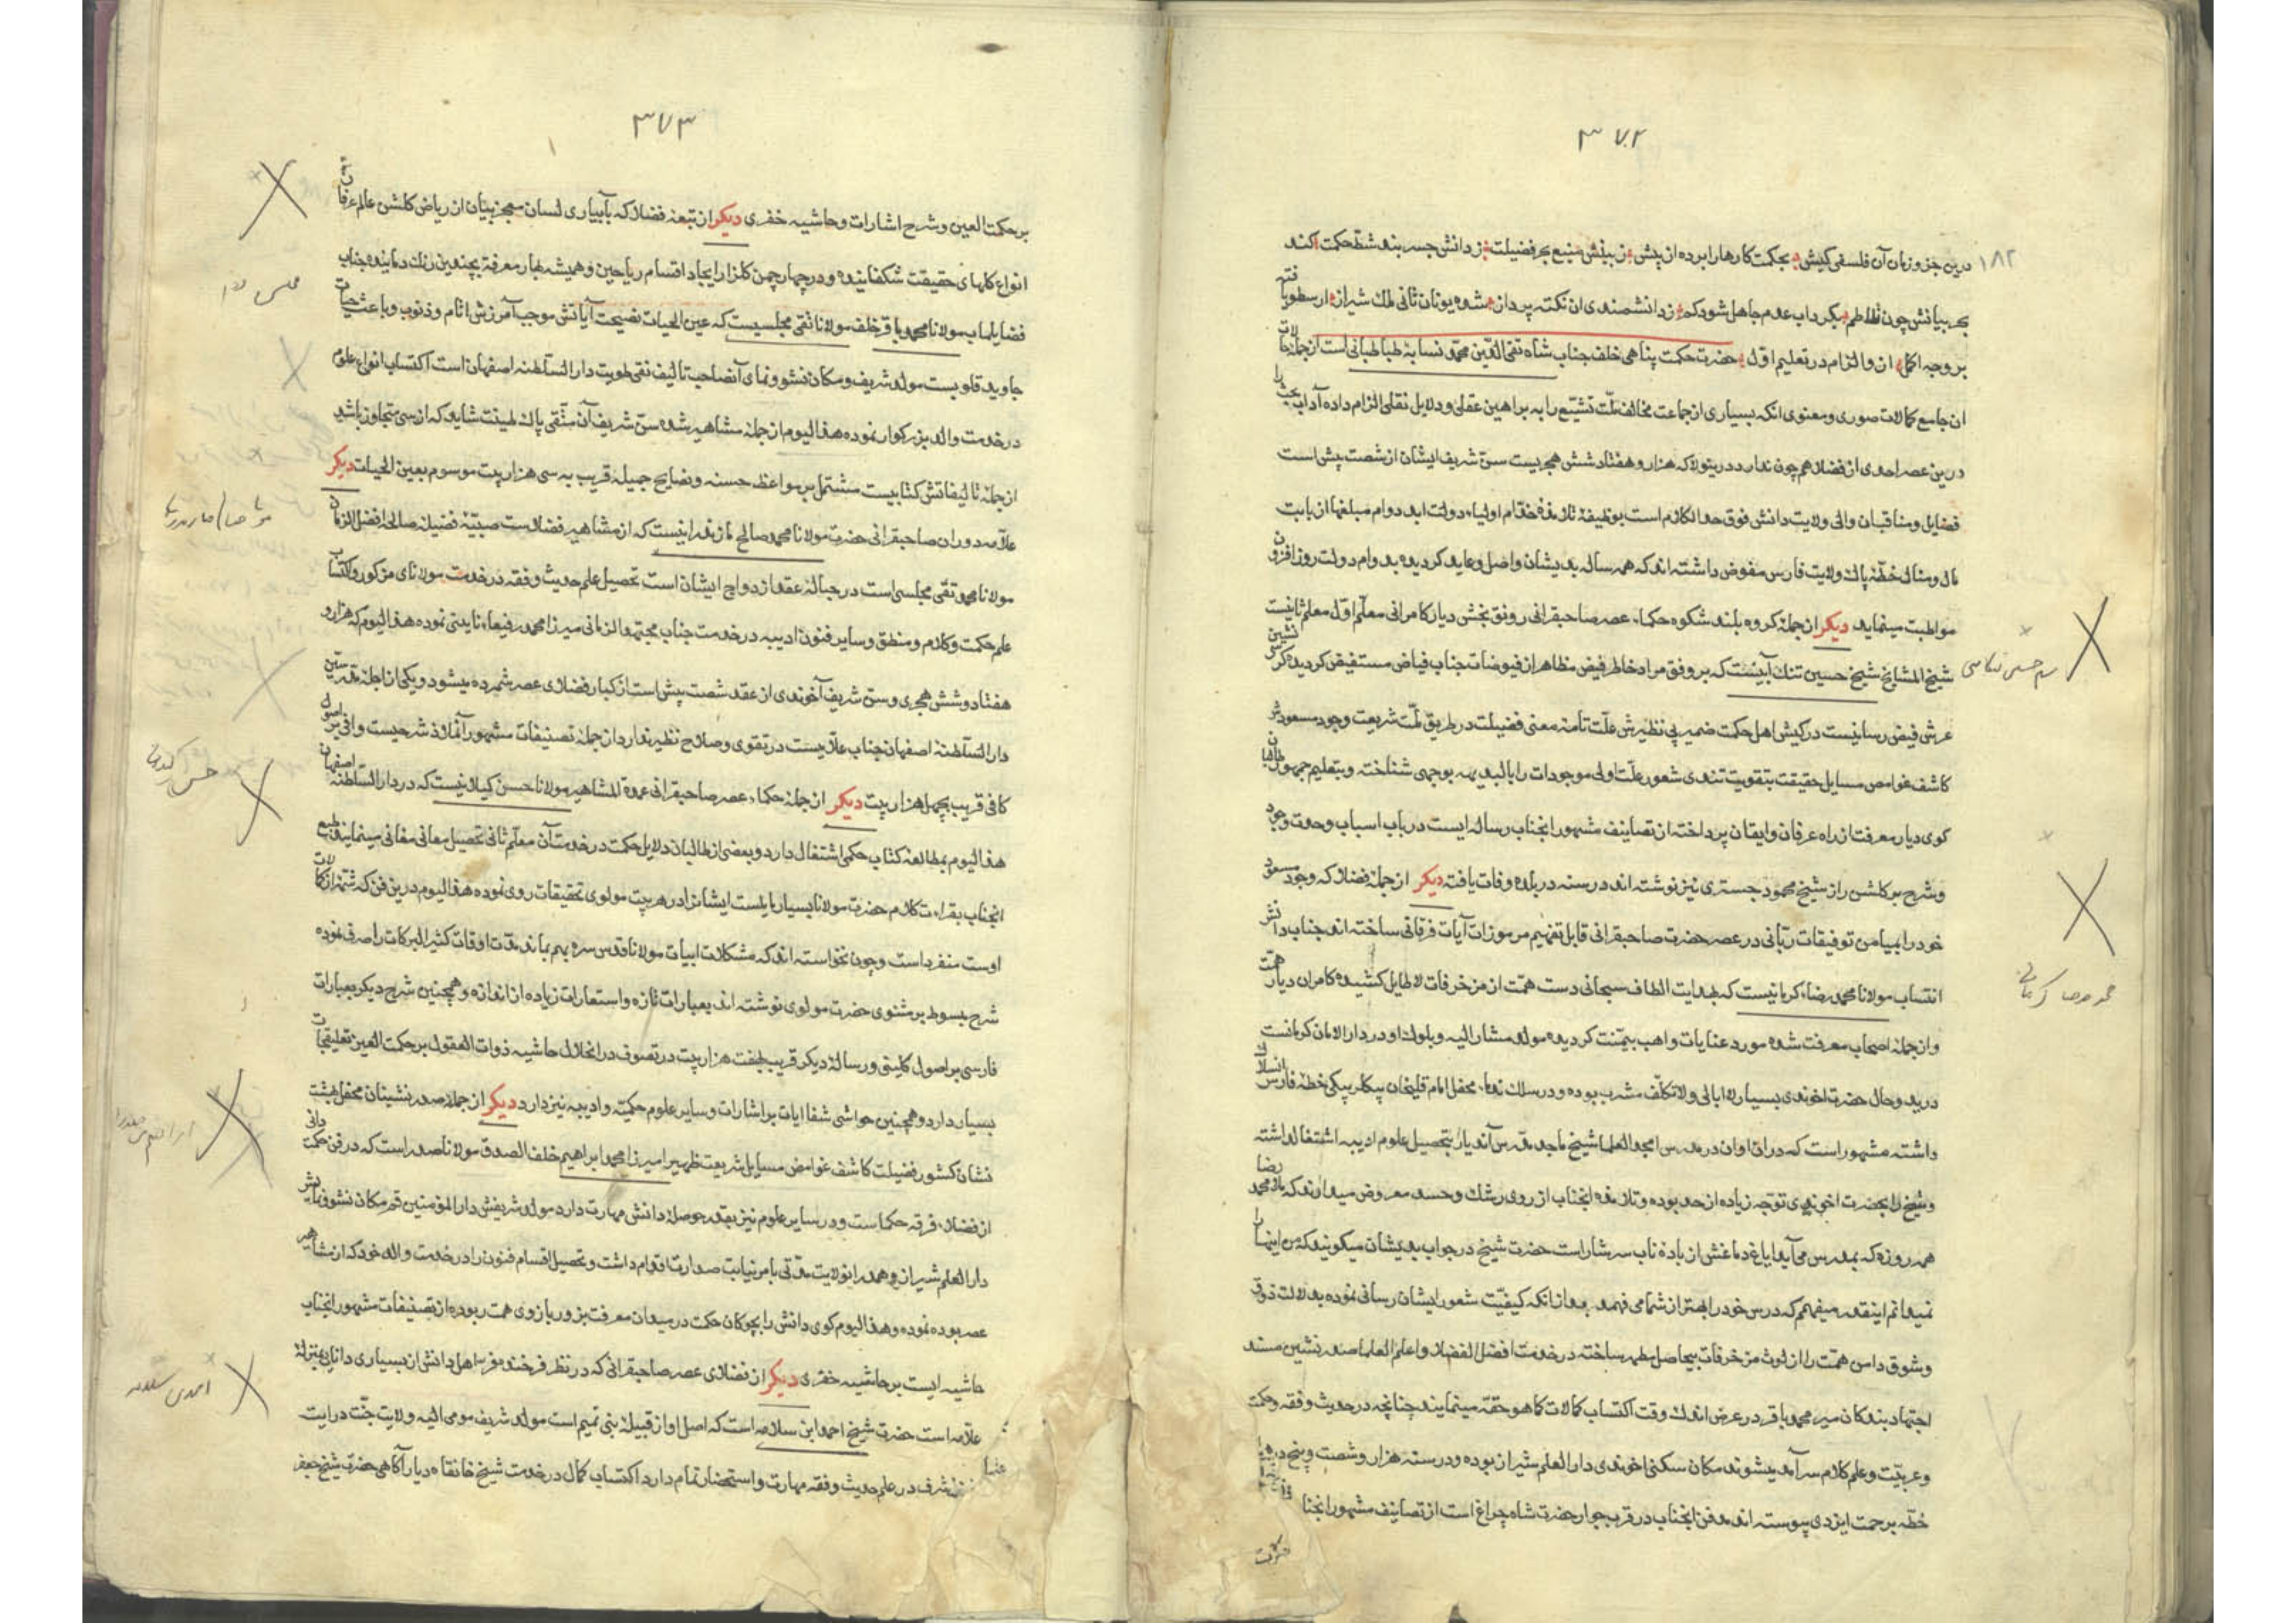 ۳۷۲
۱۸۲
درین جزو زمان آن فلسفی کیش بحکمت کارها را برده از پیش ز بینش منبع بحر فضیلت ز دانش جسر بند شط حکمت کند
بحر بیانش چون تلاطم بکرداب عدم جاهل شود کم ز دانشمندی ان نکته پرداز شده یونان ثانی ملک شیراز ارسطو با فتنه
بر وجه اکمل ان والزام در تعلیم اول حضرت حکمت پناهی خلف جناب شاه تقی الدین محمد نسابه طباطبائی است از جمله حالات
ان جامع کمالات صوری و معنوی انکه بسیاری از جماعت مخالف ملت تشیع را به براهین عقلی و دلایل نقلی الزام داده آداب بحث را
درین عصر احدی از فضلا هم چون ندارد درینولا که هزار و هفتاد شش هجریست سن شریف ایشان از شصت پیش است
فضایل و مناقب ان والی ولایت دانش فوق حد الکلام است بوظیفه تلامذه خدام اولیاء دولت ابد دوام مبلغها از بابت
مال و منال خطه پاک ولایت فارس مفوض داشته اند که همه ساله بدیشان واصل و عاید کردیده بدوام دولت روز افزون
مواظبت مینماید دیکر از جمله کروه بلند شکوه حکماء عصر صاحبقرانی رونق بخش دیار کامرانی معلم اول معلم ثانیست
شیخ المشایخ شیخ حسین تنک آبیست که بر وفق مراد خاطر فیض مظاهر از فیوضات جناب فیاض مستفیض کردیده کرسی نشین
عرش فیض رسانیست در کیش اهل حکمت ضمیر بی نظیرش علت تامه معنی فضیلت در طریق ملت شریعت وجود مسعودش
کاشف غوامص مسایل حقیقت بتقویت تندی شعور علت اولی موجودات را بالبدیهه بوجهی شناخته و بتعلیم جمهور طالبان
کوی دیار معرفت از راه عرفان و ایقان پرداخته از تصانیف مشهور انجناب رساله ایست در باب اسباب وحدت وجود
و شرح بر کلشن راز شیخ محمود جستری نیز نوشته اند در سنه در بلده وفات یافته دیکر از جمله فضلا که وجود مسعود
خود را بمیامن توفیقات ربانی در عصر حضرت صاحبقرانی قابل تفهیم مرموزات آیات فرقانی ساخته اند جناب دانش
انتساب مولانا محمد رضاء کرمانیست که بهدایت الطاف سبحانی دست همت از مزخرفات لاطایل کشیده کامران دیار همت
و از جمله اصحاب معرفت شده مورد عنایات واهب بیمنت کردیده مولد مشار الیه و بلوک او در دار الامان کرمانست
در بدو حال حضرت اخوندی بسیار لاابالی و لاتکلف مشرب بوده و در سلک ندماء محفل امام قلیخان بیکلر بیکی خطه فارس انسلاک
داشته مشهور است که دران اوان در مدرس امجد العلما شیخ ماجد مدرس آندیار بتحصیل علوم ادبیه اشتغال داشته
و شیخ را بحضرت اخوندی توجه زیاده از حد بوده و تلامذه انجناب از روی رشک و حسد معروض میدارند که ملا محمد رضا
همه روزه که بمدرس می آید ایاغ دماغش از باده ناب سرشار است حضرت شیخ در جواب بدیشان میکویند که من اینها را
نمیدانم اینقدر میفهمم که درس خود را بهتر از شما می فهمد بعد از انکه کیفیت شعور ایشان رسائی نموده بدلالت ذوق
و شوق دامن همت را از لوث مزخرفات بیحاصل مطهر ساخته در خدمت افضل الفضلا و اعلم العلما صدر نشین مسند
اجتهاد بندکان میر محمد باقر در عرض اندک وقت اکتساب کمالات کما هو حقه مینمایند چنانچه در حدیث و فقه و حکمت
و عربیت و علم کلام سرآمد میشوند مکان سکنی اخوندی دار العلم شیراز بوده و در سنه هزار و شصت و پنج
خطه برحمت ایزدی پیوسته اند مدفن انجناب در قرب جوار حضرت شاه چراغ است از تصانیف مشهور انجنا
محمد رضا کرمانی
۳۷۳
بر حکمت العین و شرح اشارات و حاشیه خفری دیکر از تبعه فضلا که بآبیاری لسان معجز بیان از ریاض کلشن عالم عرفان
انواع کلهای حقیقت شکفانیده و در چهار چمن کلزار ایجاد اقسام ریاحین و همیشه بهار معرفة بچندین رنک دمانیده جناب
فضایلماب مولانا محمد باقر خلف مولانا تقی مجلسیست که عین الحیات نصیحت آیاتش موجب آمرزش اثام و ذنوب و باعث حیات
جاوید قلوبست مولد شریف و مکان نشو و نمای آنصاحب تالیف نقی طویت دار السلطنه اصفهان است اکتساب انواع علوم
در خدمت والد بزرکوار نموده هذا الیوم از جمله مشاهیر شده سن شریف آن متقی پاک طینت شاید که از سی متجاوز باشد
از جمله تالیفاتش کتابیست مشتمل بر مواعظ حسنه و نصایح جمیله قریب به سی هزار بیت موسوم بعین الحیات دیکر
علامه دوران صاحبقرانی حضرت مولانا محمد صالح مازندرانیست که از مشاهیر فضلاست صبیه فضیله صالحه افضل الزمان
مولانا محمد تقی مجلسی است در حباله عقد ازدواج ایشان است تحصیل علم حدیث و فقه در خدمت مولانای مذکور و اکتساب
علم حکمت و کلام و منطق و سایر فنون ادبیه در خدمت جناب مجتهد الزمانی میرزا محمد رفیعاء نایینی نموده هذا الیوم که هزار و
هفتاد و شش هجری و سن شریف آخوندی از عقد شصت پیش است از کبار فضلای عصر شمرده میشود و یکی از اجله مدرسین
دار السلطنه اصفهان جناب علامیست در تقوی و صلاح نظیر ندارد از جمله تصنیفات مشهور آنملاذ شرحیست وافی بر اصول
کافی قریب بچهل هزار بیت دیکر از جمله حکماء عصر صاحبقرانی عمدة المشاهیر مولانا حسن کیلانیست که در دار السلطنه اصفهان
هذا الیوم بمطالعه کتاب حکمی اشتغال دارد و بعضی از طالبان دلایل حکمت در خدمت آن معلم ثانی تحصیل معانی مغانی مینمایند طبع
انجناب بقراءت کلام حضرت مولانا بسیار مایلست ایشانرا در هر بیت مولوی تحقیقات روی نموده هذا الیوم درین فن که شمه از کمالات
اوست منفرد است و چون نخواسته اند که مشکلات ابیات مولانا قدس سره مبهم بماند مدت اوقات کثیر البرکات را صرف نموده
شرح مبسوط بر مثنوی حضرت مولوی نوشته اند بعبارات تازه و استعارات زیاده از اندازه و همچنین شرح دیکر بعبارات
فارسی بر اصول کلینی و رساله دیکر قریب بهفت هزار بیت در تصوف در انحلال حاشیه ذوات العقول بر حکمت العین تعلیقات
بسیار دارد و همچنین حواشی شفا ایات بر اشارات و سایر علوم حکمیه و ادبیه نیز دارد دیکر از جمله صدر نشینان محفل بهشت
نشان کشور فضیلت کاشف غوامض مسایل شریعت ظهیرا میرزا محمد ابراهیم خلف الصدق مولانا صدراست که در فن حکمت دانی
از فضلاء فرقه حکماست و در سایر علوم نیز بقدر حوصله دانش مهارت دارد مولد شریفش دار المؤمنین قم مکان نشو و نمایش
دار العلم شیراز و همدرانولایت مدتی بامر نیابت صدارت اقدام داشت و تحصیل اقسام فنون را در خدمت والد خود که از مشاهیر
عصر بوده نموده و هذا الیوم کوی دانش را بچوکان حکمت در میدان معرفت بزور بازوی همت ربوده از تصنیفات مشهور انجناب
حاشیه ایست بر حاشیه خفری دیکر از فضلای عصر صاحبقرانی که در نظر فرخنده فر اهل دانش از بسیاری دانائی بمنزله
علامه است حضرت شیخ احمد ابن سلامه است که اصل او از قبیله بنی تمیم است مولد شریف مومی الیه ولایت جنت درایت
نجف اشرف در علم حدیث و فقه مهارت و استحضار تمام دارد اکتساب کمال در خدمت شیخ خانقاه دیار آکاهی حضرت شیخ جعفر